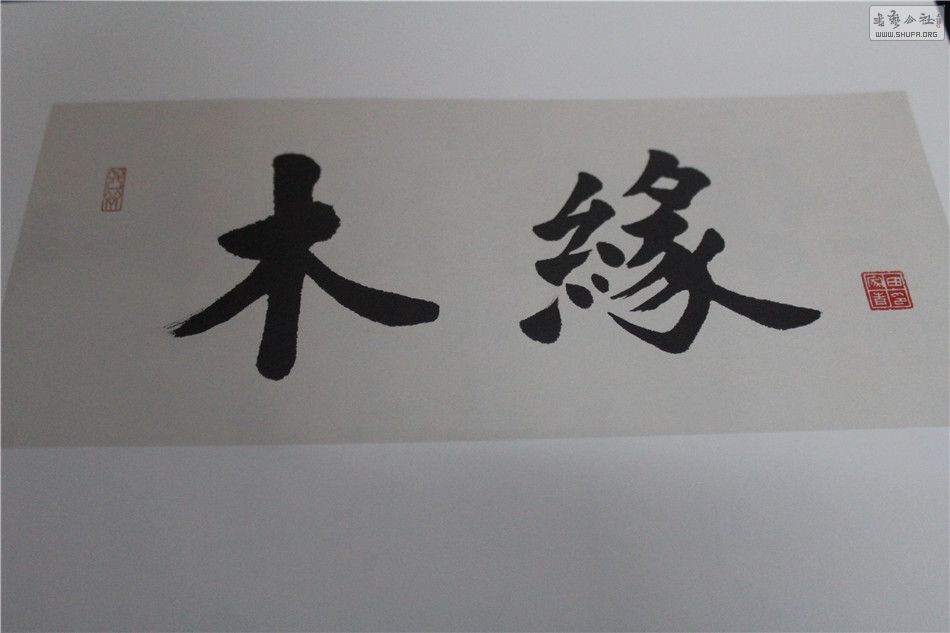 木緣
書藝公社
WWW.SHUFA.ORG